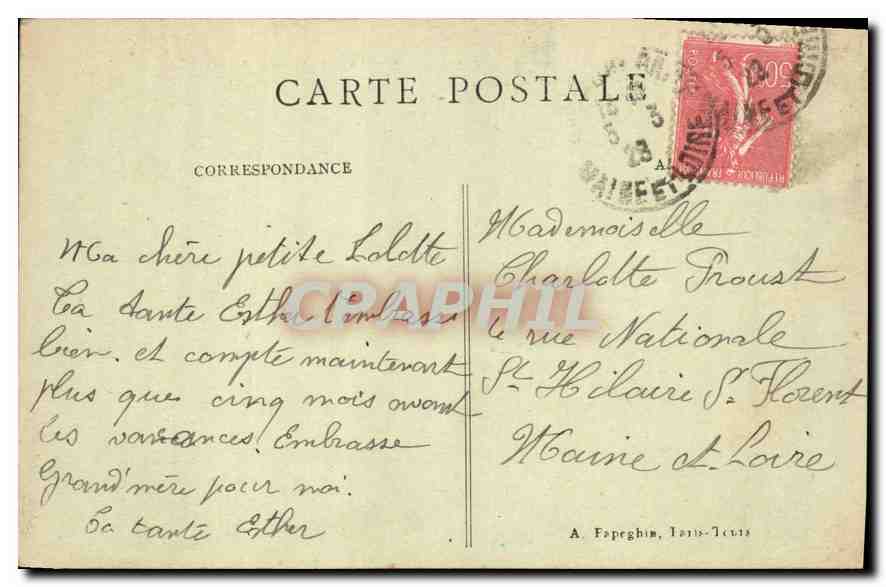 CARTE POSTALE
CORRESPONDANCE
Ma chère petite Lolotte
Ta tante Esther t'embrasse
bien. et compte maintenant
plus que cinq mois avant
les vacances. Embrasse
Grand'mère pour moi.
Ta tante Esther
Mademoiselle
Charlotte Proust
rue Nationale
St Hilaire St Florent
Maine et Loire
A. Papeghin, Paris-Tours
50c
POSTES
REPUBLIQUE FRA
MAINE ET LOIRE
MAINE ET
CRAPHIL